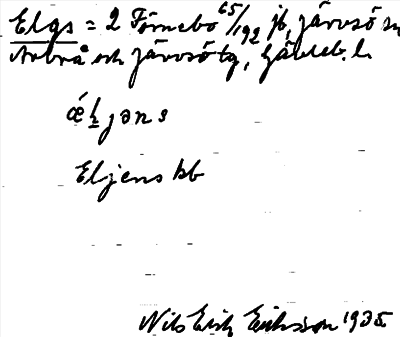 Elgs = 2 Förnebo 65/192 jb, Järvsö sn
Arbrå och Järvsö tg, Gävleb. l.
ǽḷjəns
Eljens kb
Nils Erik Eriksson 1935